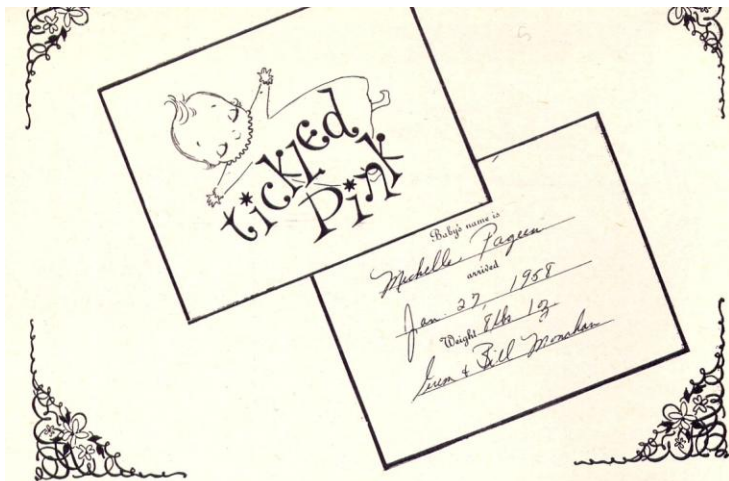 tickled
Pink
Baby's name is
Michelle
arrived
Jan. 27, 1958
Weight 8 lbs 12
& Bill Monahan